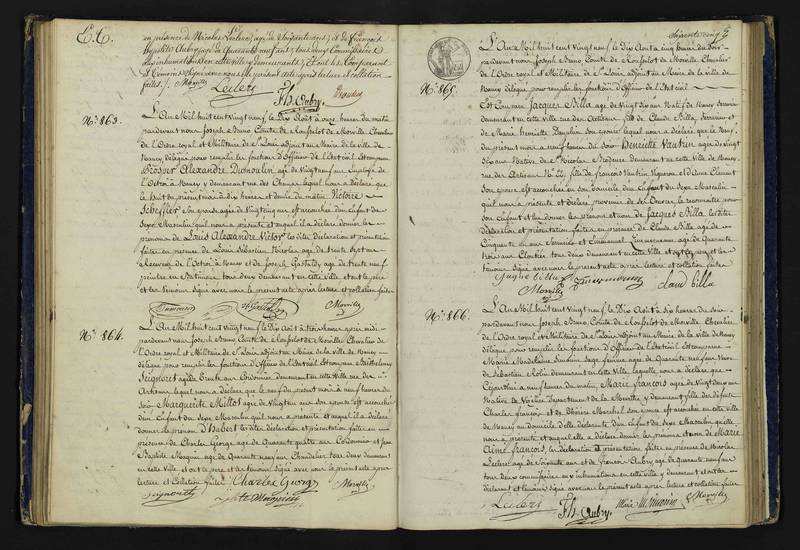 en présence de Nicolas Leclerc, agé de Soixante ans, et de François
hypolite Aubry agé de Quarante neuf ans, tous deux Commissaires
des inhumations en cette ville y demeurants, Et ont les Comparant
et Témoins signé avec nous le présent acte après lecture et collation
faites. Morville
Leclerc
Fh. Aubry
N.o 863.
L'An Mil huit cent vingt neuf le Dix Août à onze heures du matin
pardevant nous Joseph Bruno Comte de Morville Chevalier
de l'Ordre royal et Militaire de St Louis adjoint au Maire de la ville de
Nancy délégué pour remplir les fonctions d'Officier de l'état civil Est comparu
Prosper Alexandre Demoulin agé de vingt neuf ans Employé de
l'Octroi à Nancy y demeurant rue des lequel nous a déclaré que
le huit du présent mois à dix heures et demie du matin Victoire
Scheffler son épouse agée de vingt cinq ans est accouchée d'un Enfant du
Sexe Masculin qu'il nous a présenté et auquel il a déclaré donner les
prénoms de Louis Alexandre Victor les dites Déclaration et présentation
faites en présence de Louis Sébastien Nicolas agé de trente sept ans
Receveur de l'Octroi à Nancy et de Joseph agé de trente neuf
peintre en Bâtiment tous deux demeurant en cette ville et ont le père
et les témoins signé avec nous le présent acte après lecture et collation faites
Morville
N.o 864.
L'An Mil huit cent vingt neuf le Dix Août à trois heures après midi
pardevant nous Joseph Bruno Comte de Morville Chevalier de
l'Ordre royal et Militaire de St Louis adjoint au Maire de la ville de Nancy
délégué pour remplir les fonctions d'Officier de l'état civil Est comparu Barthelemy
agé de trente ans Cordonnier demeurant en cette ville rue des
lequel nous a déclaré que le neuf du présent mois à neuf heures du
soir Marguerite Millot agée de vingt ans son épouse est accouchée
d'un Enfant du Sexe Masculin qu'il nous a présenté et auquel il a déclaré
donner le prénom d'Isabert les dites déclaration et présentation faites en
présence de Charles George agé de Quarante quatre ans Cordonnier et Jean
Baptiste agé de Quarante neuf ans Chandelier tous deux demeurant
en cette ville et ont le père et les témoins signé avec nous le présent acte après
lecture et collation faites. Charles George Morville
Soixante cinq
N.o 865.
L'An Mil huit cent vingt neuf le Dix Août à cinq heures du soir
pardevant nous Joseph Bruno Comte de Morville Chevalier
de l'Ordre royal et Militaire de St Louis, adjoint au Maire de la ville de
Nancy délégué pour remplir les fonctions d'Officier de l'état civil
Est Comparu Jacques Billa agé de vingt six ans Natif de Nancy Serrurier
demeurant en cette ville rue des Artisans fils de Claude Billa, Serrurier et
de Marie henriette Dauphin son épouse lequel nous a déclaré que le Neuf
du présent mois à neuf heures du soir henriette Vautrin agée de vingt
six ans Native de St Nicolas Brodeuse demeurant en cette Ville de Nancy
rue des Artisans No 22, fille de francois Vautrin Vigneron et d'Anne Clement
son épouse est accouchée en son domicile d'un Enfant du Sexe Masculin
qu'il nous a présenté et déclaré provenir de ses Oeuvres, le reconnaître pour
son Enfant et lui donner les prénoms et nom de Jacques Billa les dites
déclaration et présentation faites en présence de Claude Billa agé de
Cinquante six ans Serrurier et Emmanuel Zimmermann agé de Quarante
trois ans Cloutier tous deux demeurant en cette Ville et ont le père et les
témoins signé avec nous le présent acte après lecture et collation faites
Morville Claud billa
N.o 866.
L'An Mil huit cent vingt neuf le Dix Août à six heures du soir
pardevant nous Joseph Bruno Comte de Morville Chevalier
de l'Ordre royal et Militaire de St Louis, adjoint au Maire de la ville de Nancy
délégué pour remplir les fonctions d'Officier de l'état civil Est comparue
Marie Madeleine Simonin Sage femme agée de Quarante neuf ans Veuve
de Sébastien Colin demeurant en cette Ville laquelle nous a déclaré que
Cejourd'hui à neuf heures du matin, Marie francois agée de Vingt deux ans
Native de Département de la Meurthe y demeurant fille des défunts
Charles francois et de Marechal son épouse est accouchée en cette ville
de Nancy au domicile d'elle déclarante d'un Enfant du Sexe Masculin qu'elle
nous a présenté et auquel elle a déclaré donner les prénoms et nom de Marie
Aimé francois, les déclaration et présentation faites en présence de Nicolas
Leclerc agé de Soixante ans et de francois Aubry agé de Quarante neuf ans
tous deux commissaires aux inhumations en cette ville y demeurant et ont les
déclarant et témoins signé avec nous le présent acte après lecture et collation faites
Leclerc Fh. Aubry Marie M. Simonin Morville